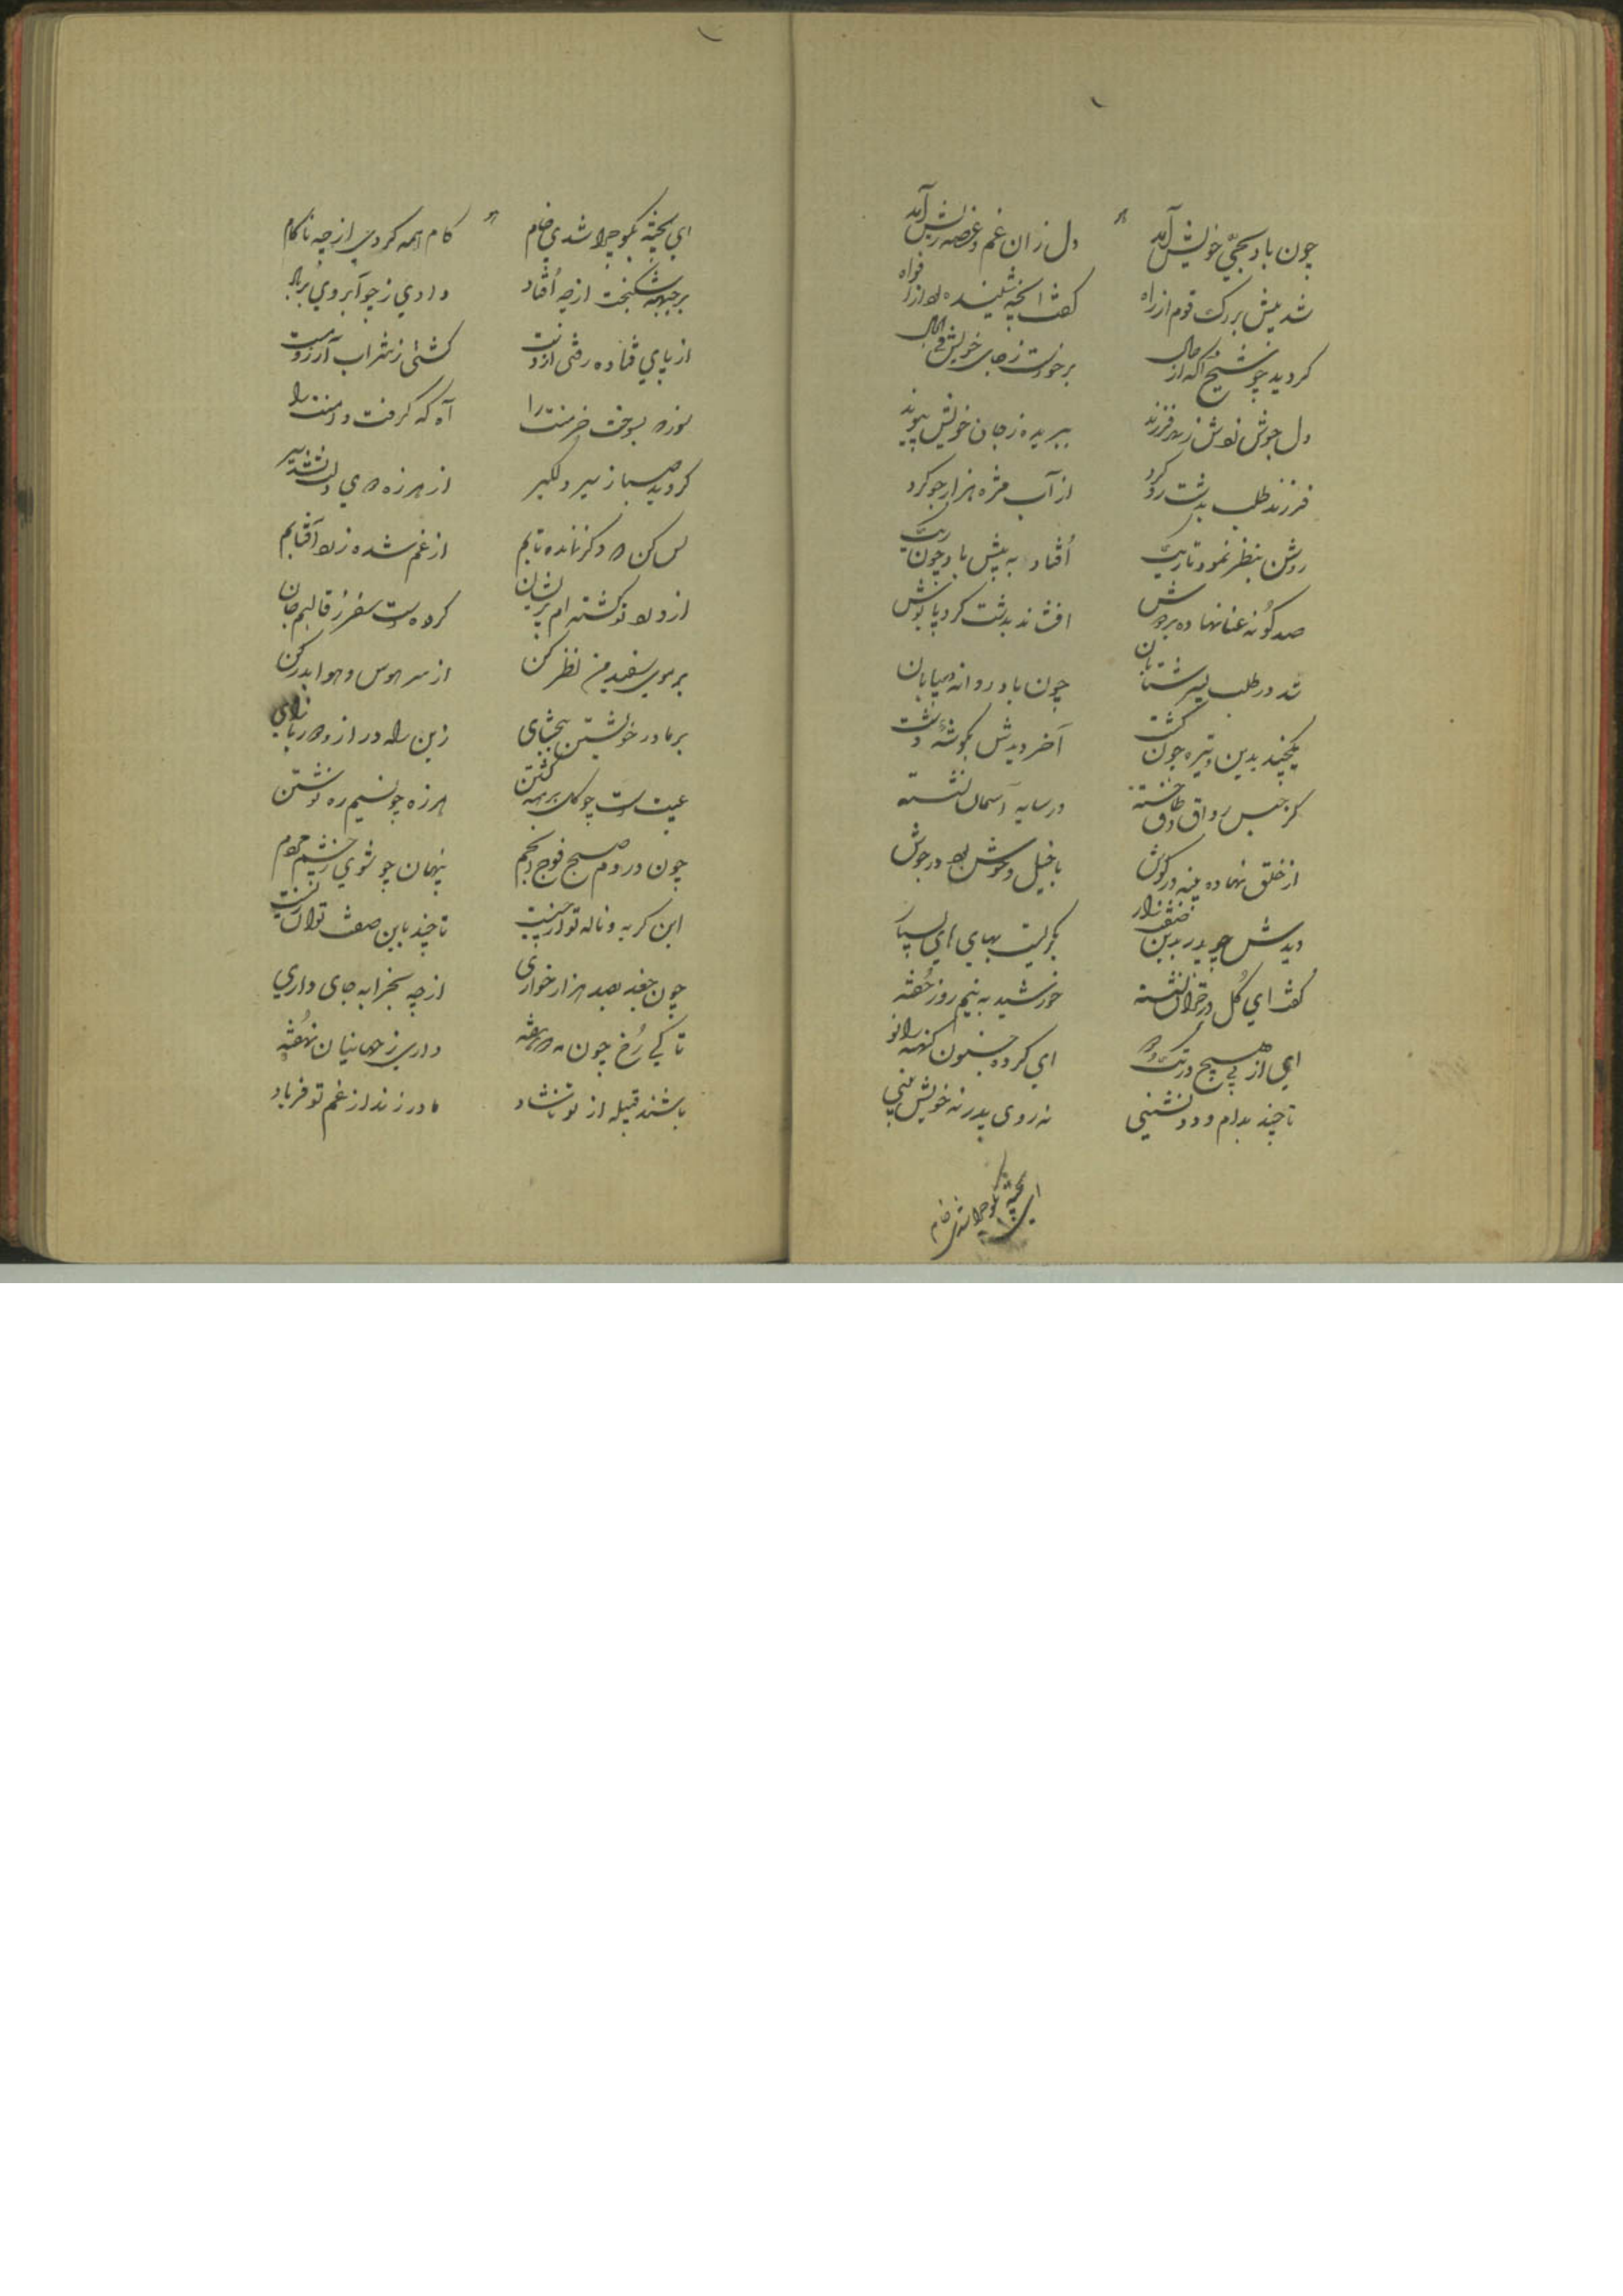 چون باد بحیّ خویش آمد دل زان غم و غصه ریش آمد
شد پیش بزرک قوم از راه گفت آنچه شنیده بود از افواه
کردید چو شیخ آکه از حال برخواست ز جای خویش فی الحال
دل جوش نوش ز مهر فرزند ببریده ز جان خویش پیوند
فرزند طلب بدشت رو کرد از آب مژه هزار جو کرد
روشن بنظر نمود تاریک افتاد به پیش باد چون ریک
صد کونه عنا نهاده بر دوش افشاند بدشت کرد پاپوش
شد در طلب پسر شتابان چون باد روانه در بیابان
یکچند بدین وتیره چون کشت آخر دیدش بکوشهٔ دشت
کز جنس رواق و طاق خسته در سایه آسمان نشسته
از خلق نهاده پنبه در کوش با خیل وحوش بود در جوش
دیدش چو پدر بدین ضعف زار بکریست بهای های بسیار
کفت ای کل در خزان نشسته خورشید به نیم روز خفته
ای از پی هیچ در تک و دو ای کرده جنون کهنه را نو
تا چند بدام و دد نشینی نه روی پدر نه خویش بینی
ای پخته بکو چرا شدی خام
ای پخته بکو چرا شدی خام کام همه کردی از چه ناکام
بر جبهه شکنجت از چه افتاد دادی ز چو آبروی بر باد
از پای فتاده رفتی از دست کشتی ز شراب آرزو مست
سوزه بسوخت خرمنت را آه که کرفت دامنت را
کردید صبا ز سیر دلکیر از هرزه دوی دلت نشد سیر
بس کن که دکر نمانده تابم از غم شده زرد آفتابم
از درد تو کشته ام پریشان کرده است سفر ز قالبم جان
بر موی سفید من نظر کن از سر هوس و هوا بدر کن
بر مادر خویشتن ببخشای زین راه دراز
عیب است چو کل برهنه کشتن هرزه چو نسیم ره نوشتن
چون در دم صبح فوج انجم پنهان چو شوی ز چشم مردم
این کریه و ناله تو از چیست تا چند باین صفت توان زیست
چون جغد بصد هزار خواری از چه بخرابه جای داری
تا کی رخ چون مه دو هفته داری ز جهانیان نهفته
باشند قبیله از تو ناشاد مادر زند از غم تو فریاد